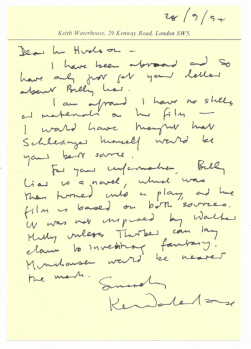 28/9/94
Keith Waterhouse, 29 Kenway Road, London SW5.
Dear Mr Hudson —
I have been abroad and so
have only just got your letter
about Billy Liar.
I am afraid I have no stills
or materials on the film —
I would have thought that
Schlesinger himself would be
your best source.
For your information, Billy
Liar is a novel, which was
then turned into a play, and the
film is based on both sources.
It was not inspired by Walter
Mitty unless Thurber can lay
claim to inventing fantasy.
Munchausen would be nearer
the mark.
Sincerely
Keith Waterhouse